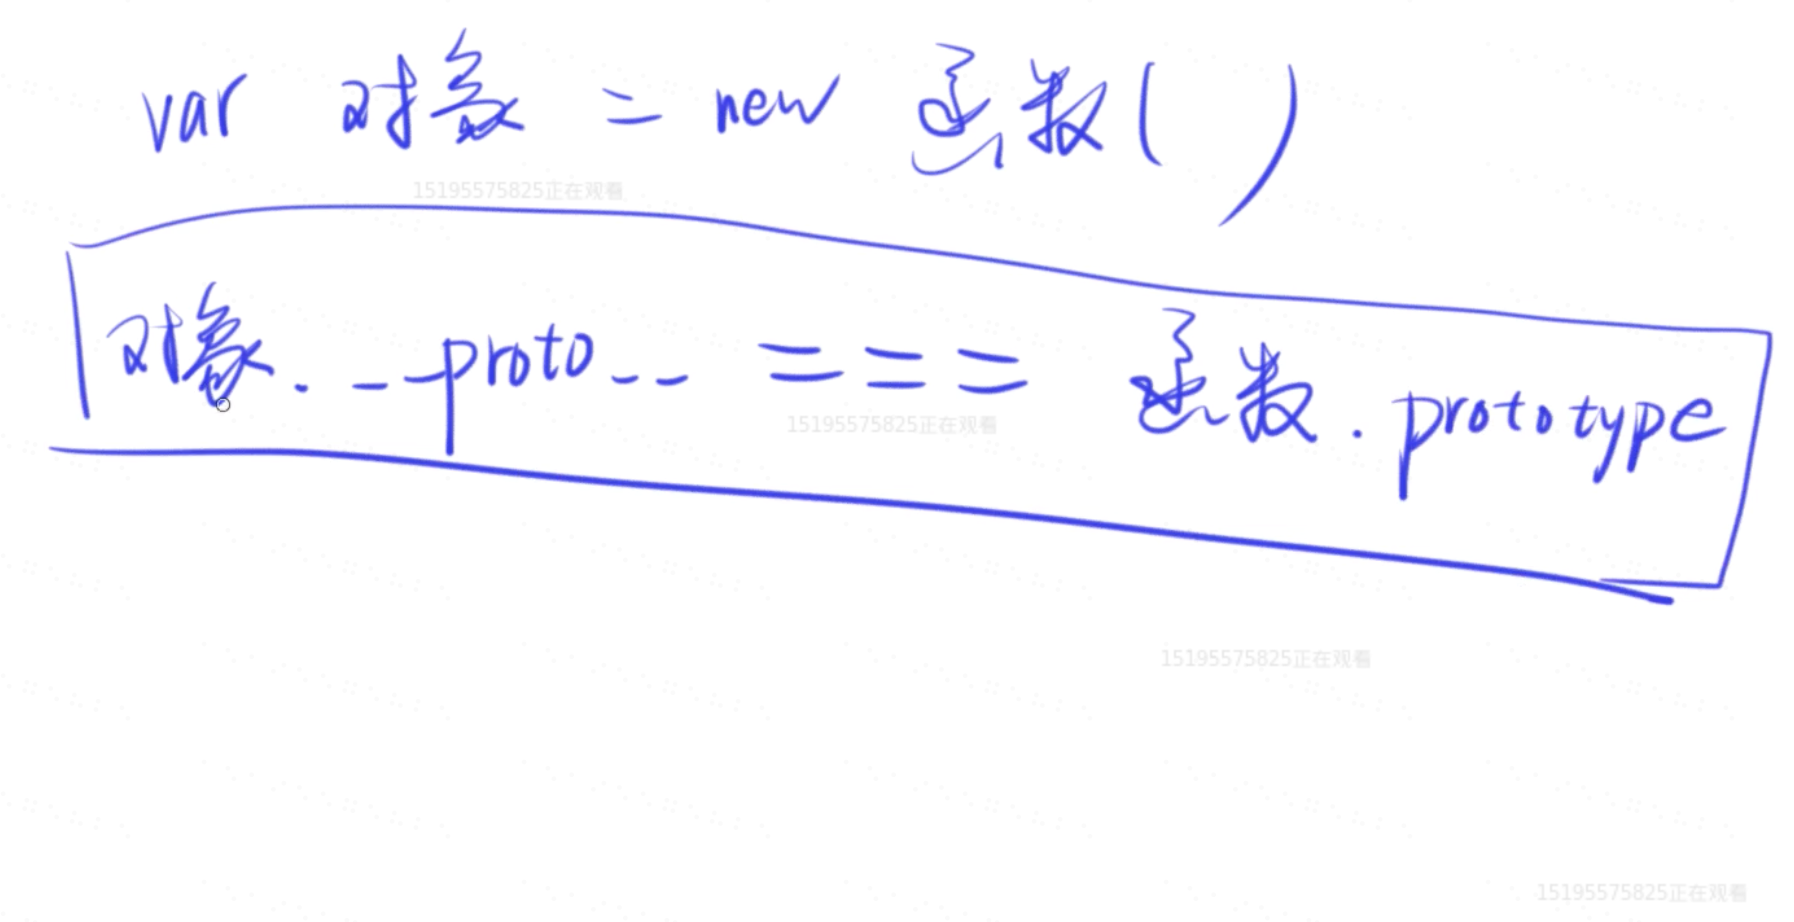 var 对象 = new 函数()
15195575825正在观看
对象.__proto__ === 函数.prototype
15195575825正在观看
15195575825正在观看
15195575825正在观看